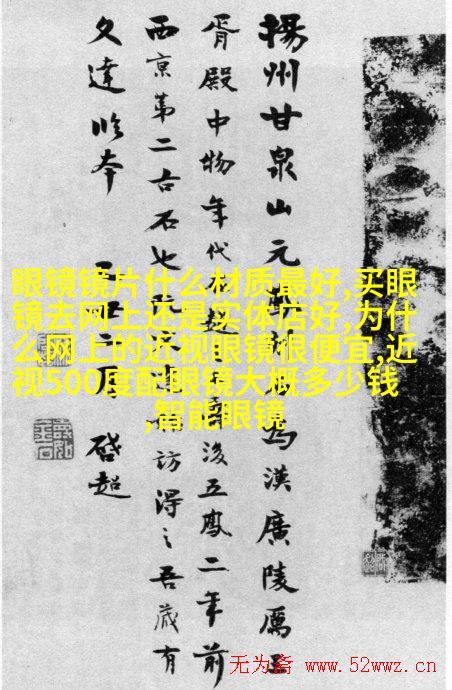 眼镜镜片什么材质最好,买眼
镜去网上还是实体店好,为什
么网上的近视眼镜很便宜,近
视500度配眼镜大概多少钱
,智能眼镜
揚州甘泉山元 為漢廣陵厲王
胥殿中物年代 後五鳳二年前
西京第二古石也 訪得之吾藏有
文達 本
啓超
无为斋 www.52wwz.cn